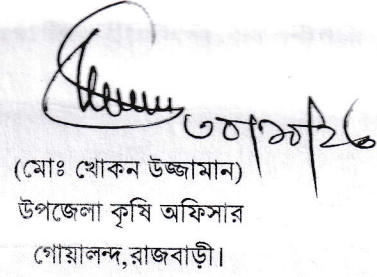 ৩০/১০/২৬
(মোঃ খোকন উজ্জামান)
উপজেলা কৃষি অফিসার
গোয়ালন্দ,রাজবাড়ী।